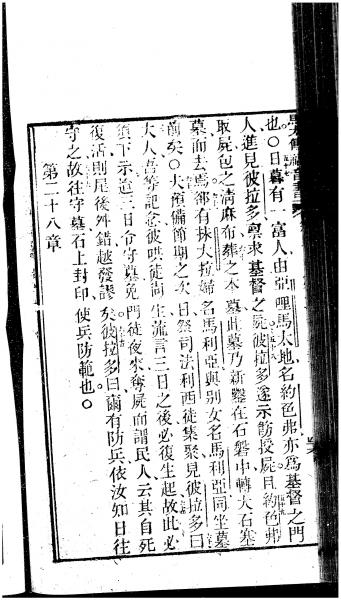 也○日暮有一富人由亞哩馬太地名約色弗亦爲基督之門
人進見彼拉多禀求基督之屍彼拉多遂示飭授屍且約色弗
取屍包之清麻布葬之本墓此墓乃新鑿在石磐中轉大石塞
墓而去焉都有抹大拉婦名馬利亞與别女名馬利亞同坐墓
前矣○大預備節期之次日祭司法利西徒集聚見彼拉多曰
大人吾等記念彼哄徒尚生流言三日之後必復生起故此必
須下示過三日令守墓免門徒夜來奪屍而謂民人云其自死
復活則尾後外錯越發謬矣彼拉多曰爾有防兵依汝知日往
守之故往守墓石上封印使兵防範也○
第二十八章